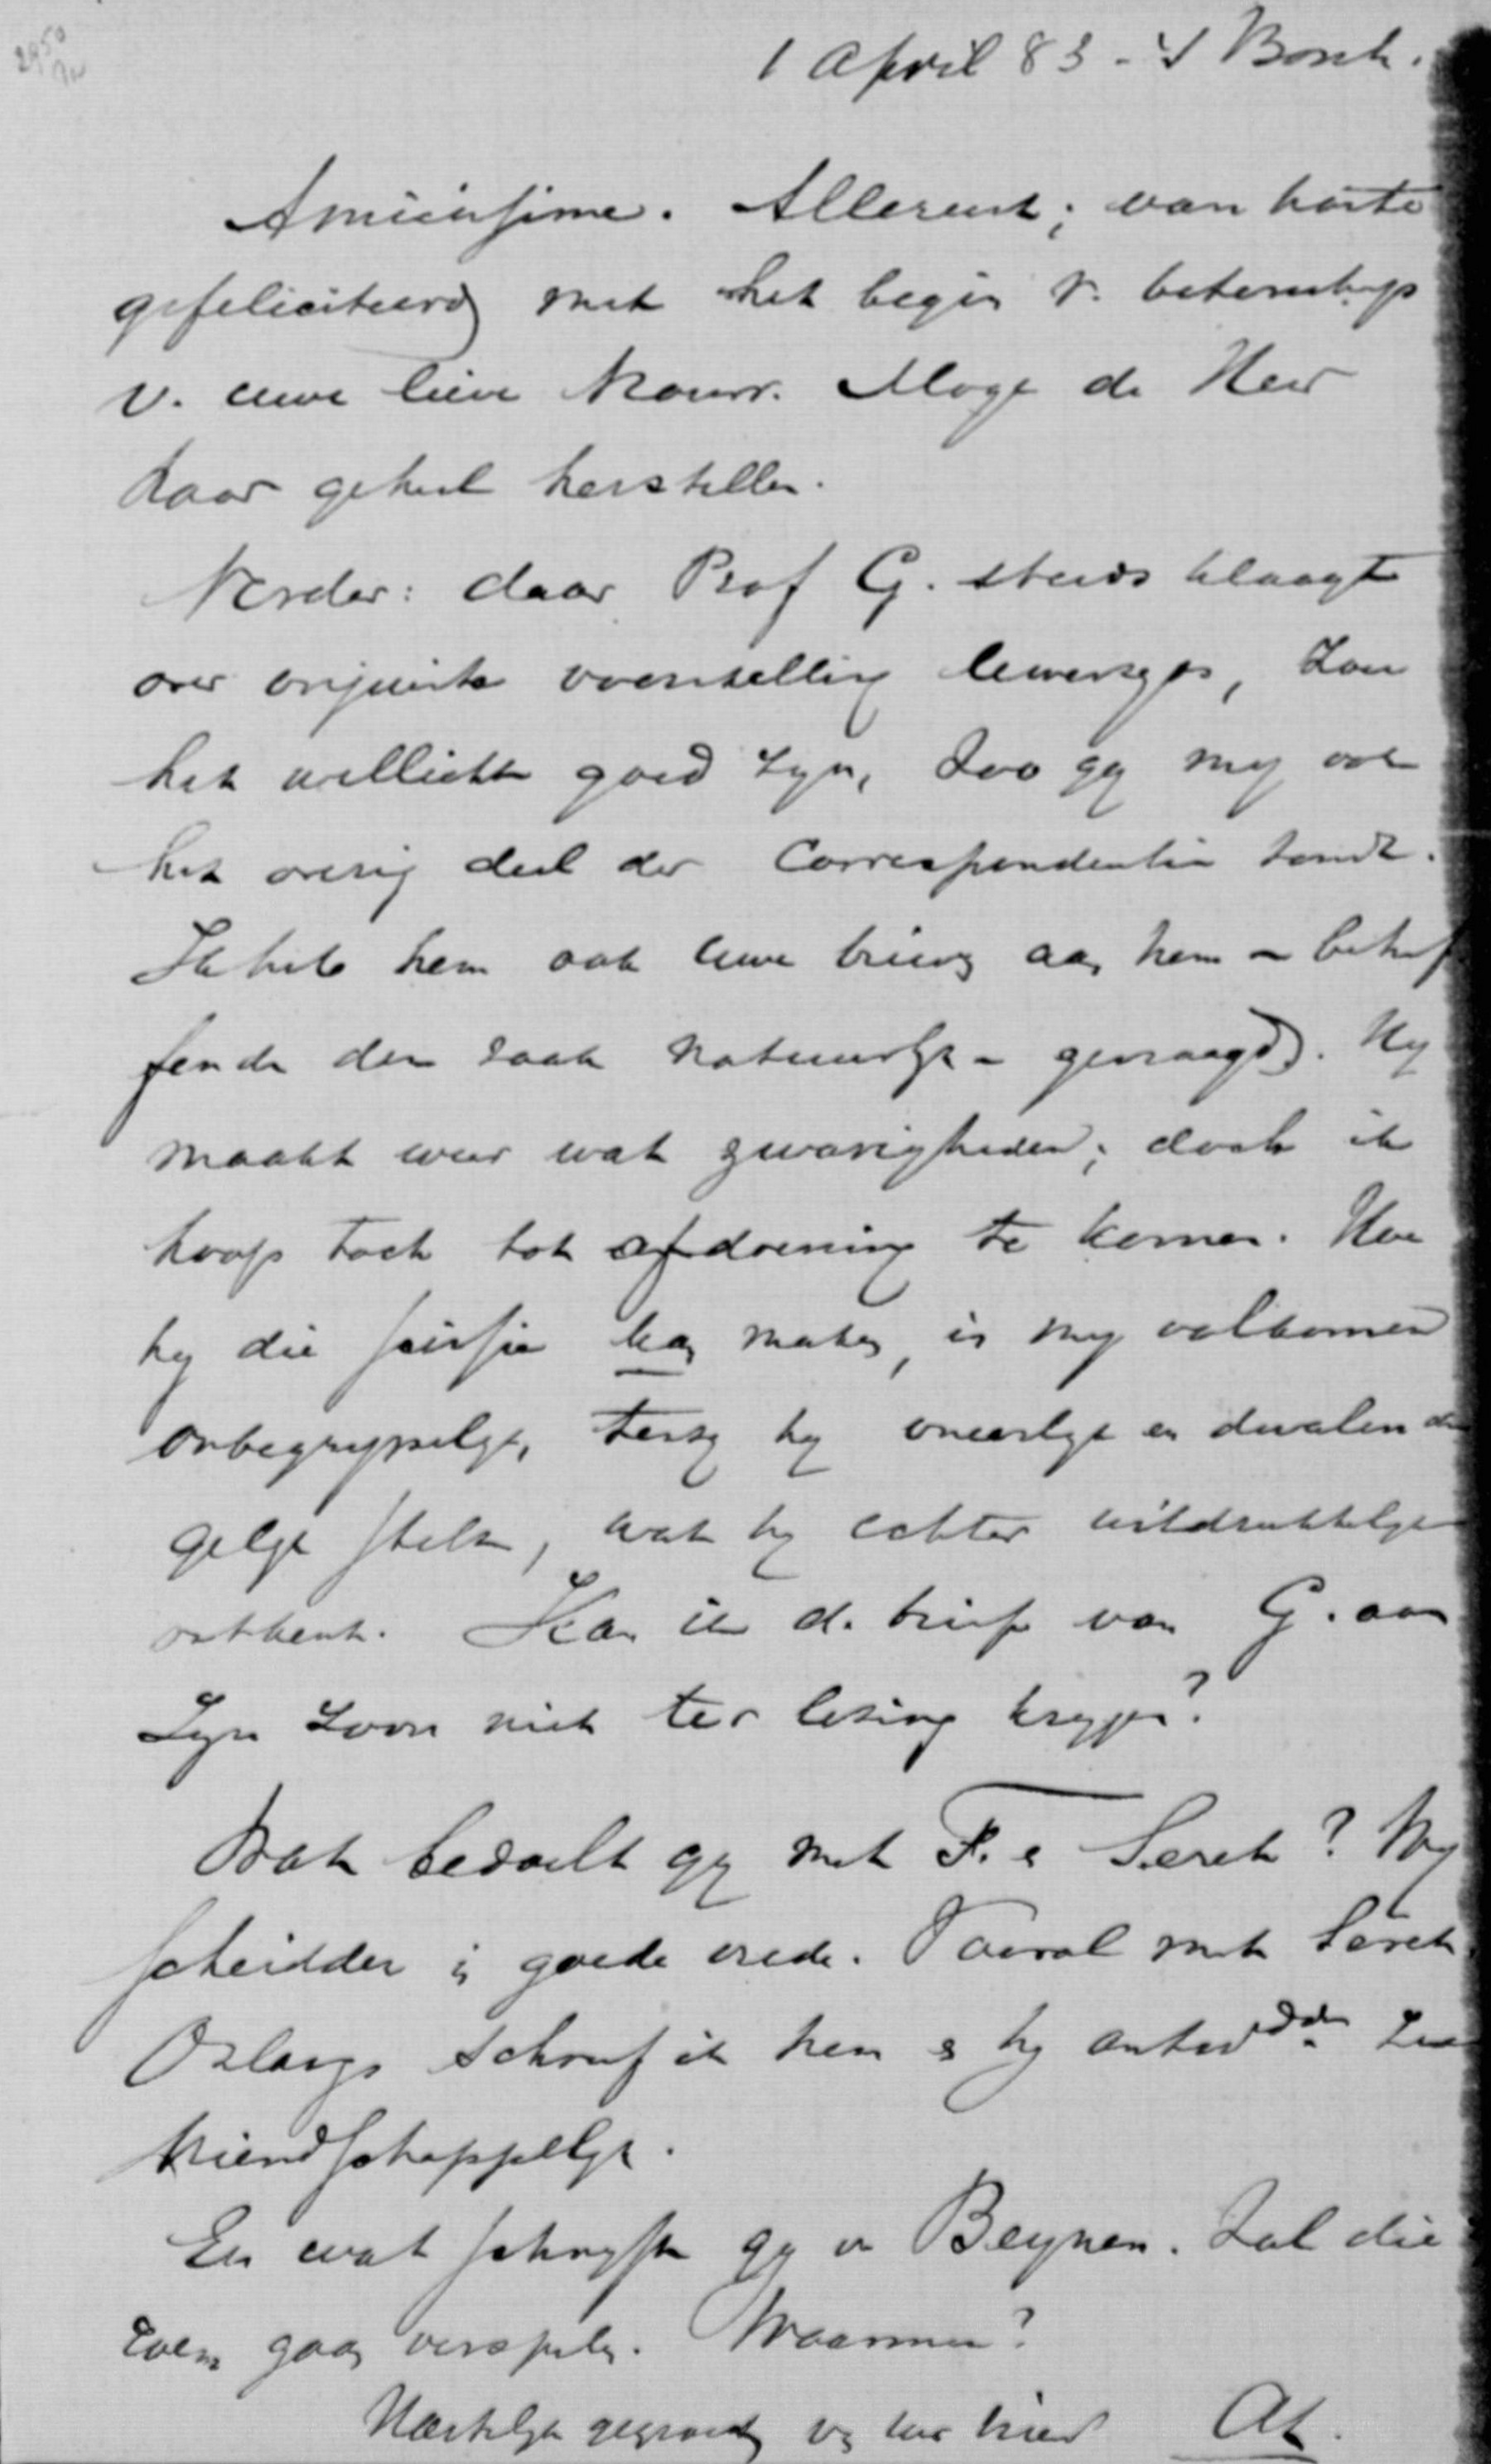 2950
1 April 83 - 's Bosch.
Amicissime. Allereerst; van harte
gefeliciteerd met het begin v. beterschap
v. uwe lieve Vrouw. Moge de Heer
haar geheel herstellen.
Verder: daar Prof G. steeds klaagt
over onjuiste voorstelling uwerzyds, zou
het wellicht goed zyn, zoo gy my ook
het overig deel der Correspondentie zondt.
Ik heb hem ook uwe brieven aan hem - betref
fende den zaak natuurlyk - gevraagd. Hy
maakt weer wat zwarigheden; doch ik
hoop toch tot afdoening te komen. Hoe
hy die fusie kan maken, is my volkomen
onbegrypelyk, tenzy hy oneerlyk en
stelt, wat hy echter uitdrukkelyk
ontkent. Kan ik de brief van G. aan
Zyn Zoon niet ter lezing krygen?
Wat bedoelt gy met F. e Seret? Wy
scheidden in goede vrede. Vooral met Seret.
Onlangs schreef ik hem & hy antwdde zeer
vriendschappelyk.
En wat schryft gy v Beynen. Zal die
gaan verspelen. Waarmee?
Hartelyk gegroet v uw vriend At.